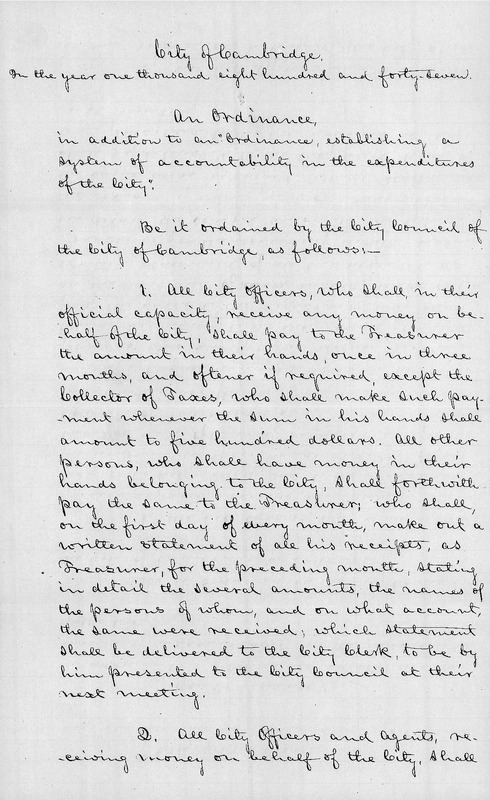 City of Cambridge.
In the year one thousand eight hundred and forty-seven.
An Ordinance,
in addition to an "Ordinance, establishing a
system of accountability in the expenditures
of the City".
Be it ordained by the City Council of
the City of Cambridge, as follows:—
1. All City Officers, who shall, in their
official capacity, receive any money on be-
-half of the City, shall pay to the Treasurer
the amount in their hands, once in three
months, and oftener if required, except the
Collector of Taxes, who shall make such pay-
-ment whenever the sum in his hands shall
amount to five hundred dollars. All other
persons, who shall have money in their
hands belonging to the City, shall forthwith
pay the same to the Treasurer; who shall,
on the first day of every month, make out a
written statement of all his receipts, as
Treasurer, for the preceding month, stating
in detail the several amounts, the names of
the persons of whom, and on what account,
the same were received; which statement
shall be delivered to the City Clerk, to be by
him presented to the City Council at their
next meeting.
2. All City Officers and agents, re-
-ceiving money on behalf of the City, shall